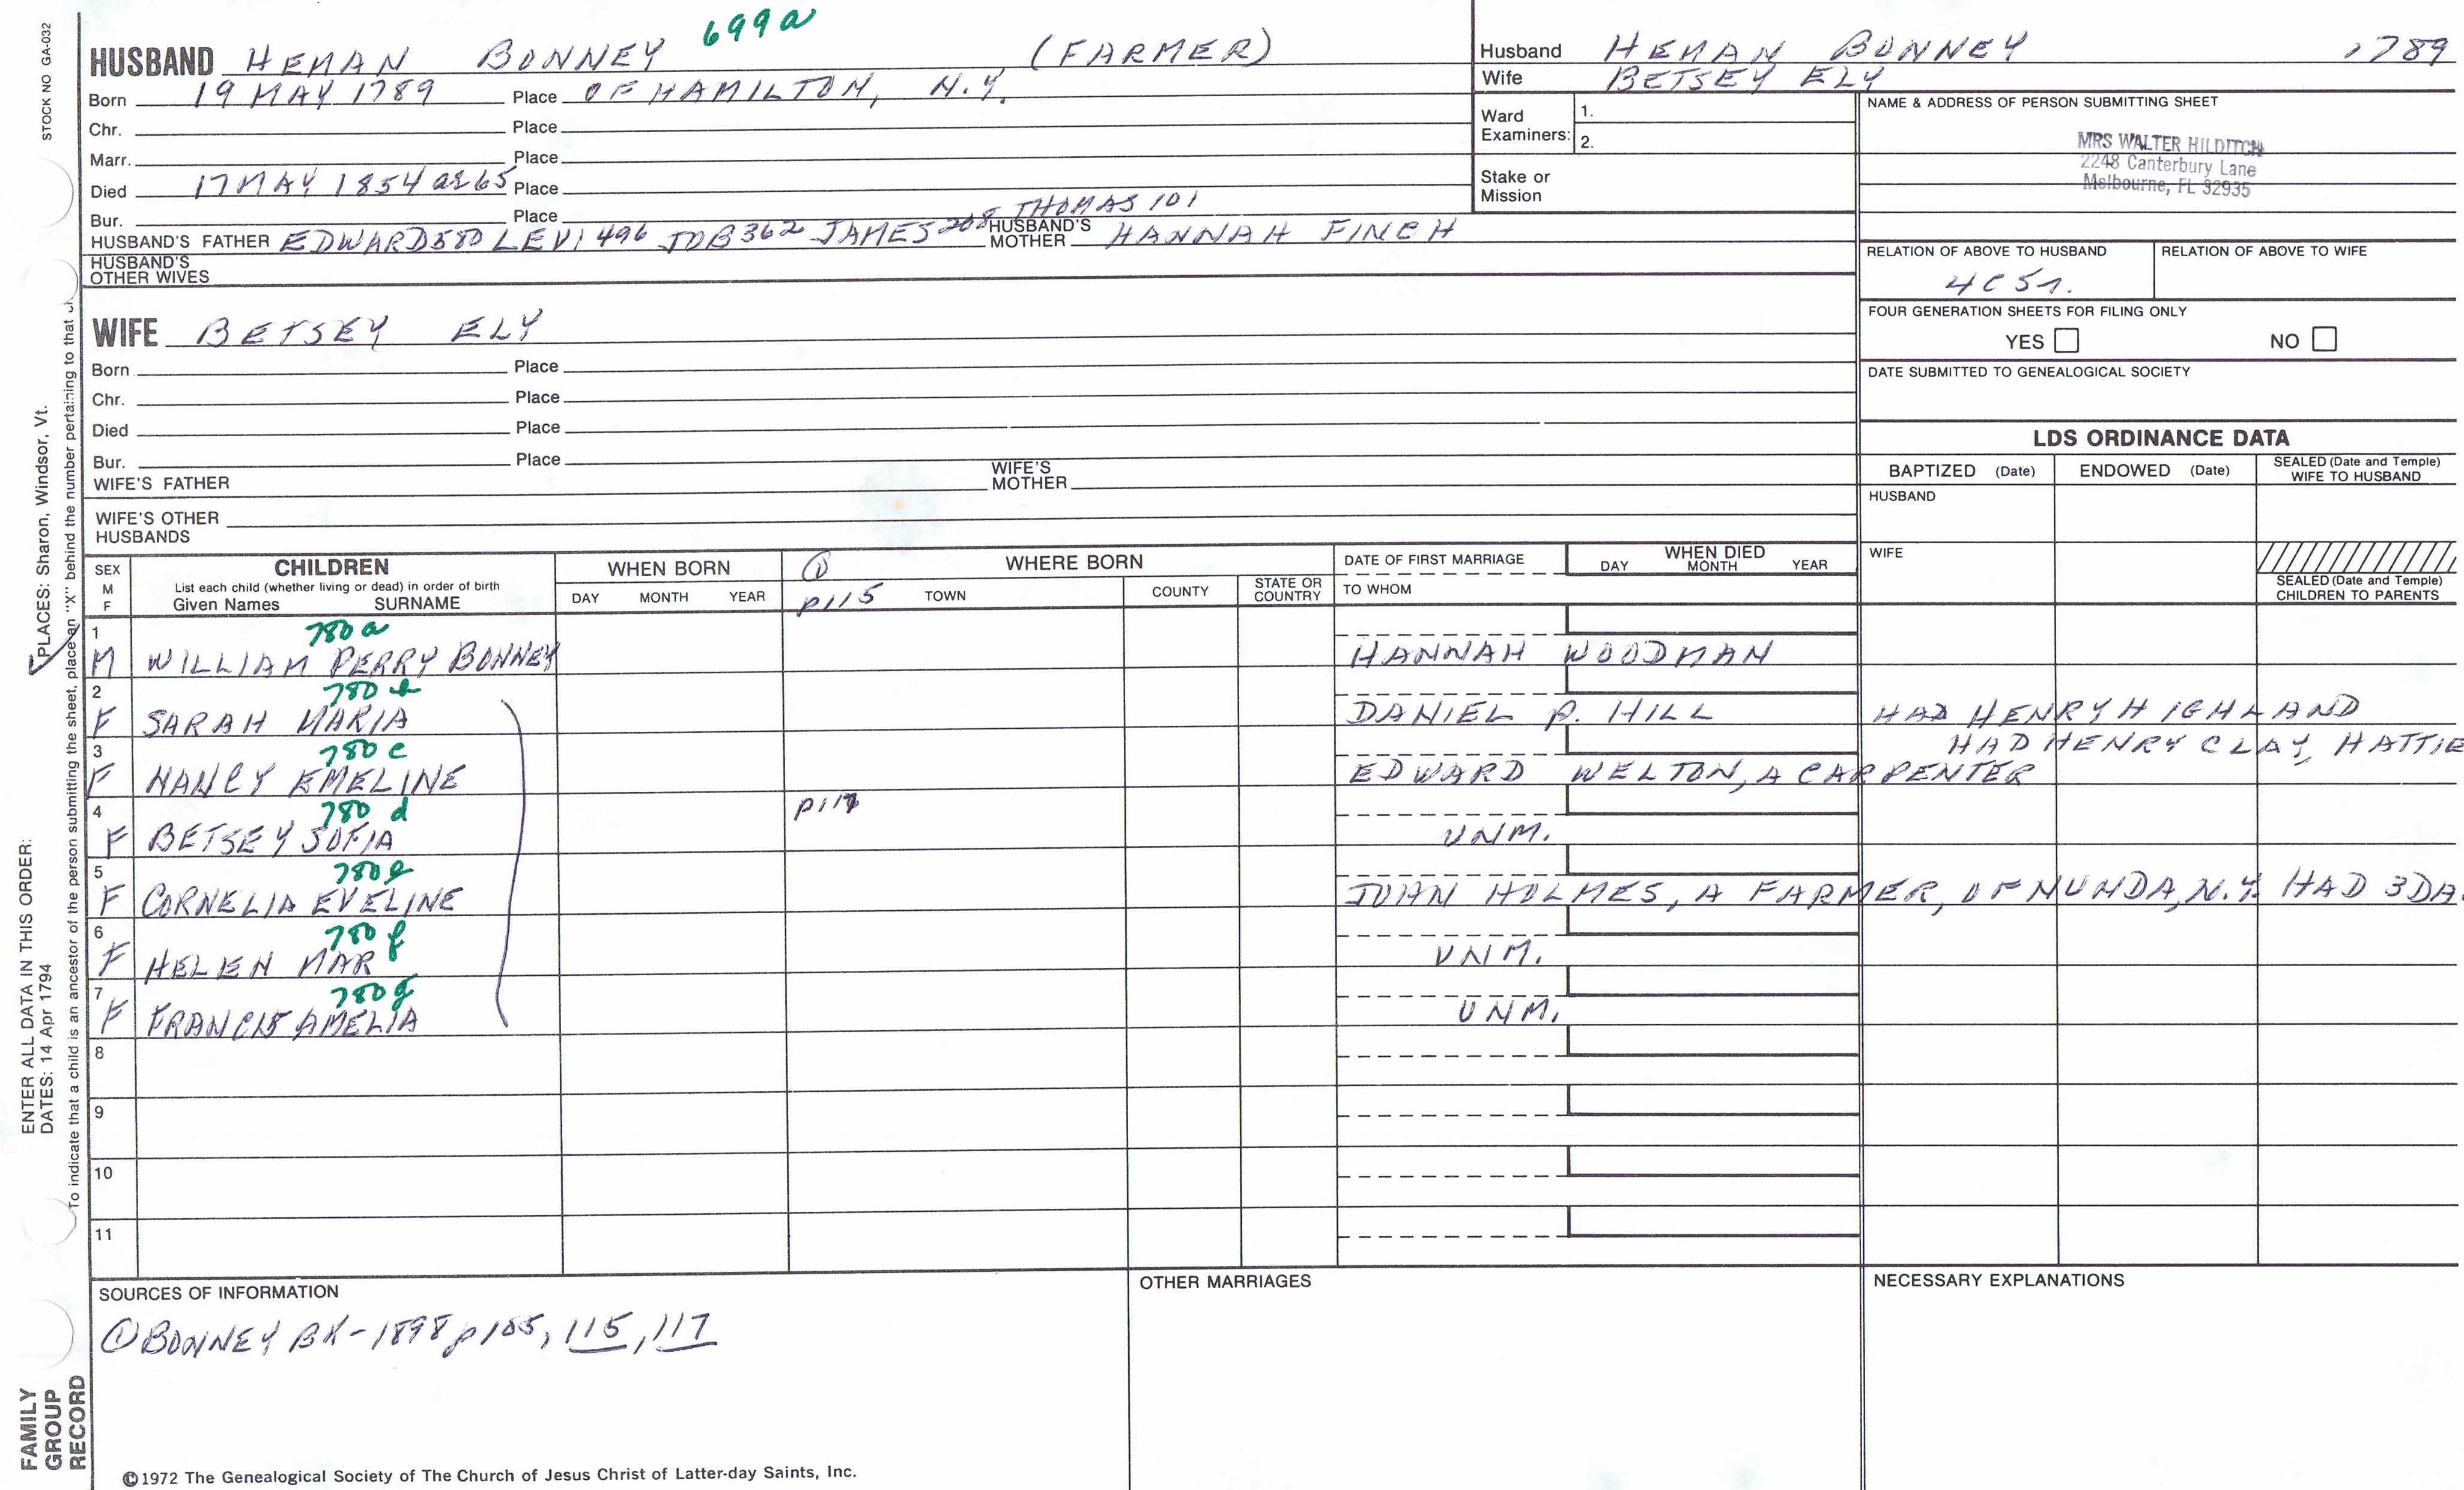 STOCK NO GA-032
699a
HUSBAND HEMAN BONNEY (FARMER)
Born 19 MAY 1789 Place OF HAMILTON, N.Y.
Chr. Place
Marr. Place
Died 17 MAY 1854 ae 65 Place
Bur. Place
THOMAS 101
HUSBAND'S FATHER EDWARD 580 LEVI 496 JOB 362 JAMES 208 HUSBAND'S MOTHER HANNAH FINCH
HUSBAND'S OTHER WIVES
WIFE BETSEY ELY
Born Place
Chr. Place
Died Place
Bur. Place
WIFE'S FATHER WIFE'S MOTHER
WIFE'S OTHER HUSBANDS
Husband HEMAN BONNEY 1789
Wife BETSEY ELY
Ward Examiners: 1.
2.
Stake or Mission
NAME & ADDRESS OF PERSON SUBMITTING SHEET
MRS WALTER HILDITCH
2248 Canterbury Lane
Melbourne, FL 32935
RELATION OF ABOVE TO HUSBAND RELATION OF ABOVE TO WIFE
4C5r.
FOUR GENERATION SHEETS FOR FILING ONLY
YES NO
DATE SUBMITTED TO GENEALOGICAL SOCIETY
LDS ORDINANCE DATA
BAPTIZED (Date) ENDOWED (Date) SEALED (Date and Temple) WIFE TO HUSBAND
HUSBAND
WIFE
SEALED (Date and Temple) CHILDREN TO PARENTS
SEX M F
CHILDREN
List each child (whether living or dead) in order of birth
Given Names SURNAME
WHEN BORN
DAY MONTH YEAR
① WHERE BORN
p115 TOWN COUNTY STATE OR COUNTRY
DATE OF FIRST MARRIAGE
TO WHOM
WHEN DIED
DAY MONTH YEAR
1 780a
M WILLIAM PERRY BONNEY HANNAH WOODMAN
2 780b
F SARAH MARIA DANIEL P. HILL HAD HENRY HIGHLAND
3 780c HAD HENRY CLAY, HATTIE
F NANCY EMELINE EDWARD WELTON, A CARPENTER
4 780d p117
F BETSEY SOFIA UNM.
5 780e
F CORNELIA EVELINE JOHN HOLMES, A FARMER, OF NUNDA, N.Y. HAD 3 DA.
6 780f
F HELEN MAR UNM.
7 780g
F FRANCIS AMELIA UNM.
8
9
10
11
SOURCES OF INFORMATION
① BONNEY BK-1898 p105, 115, 117
OTHER MARRIAGES
NECESSARY EXPLANATIONS
©1972 The Genealogical Society of The Church of Jesus Christ of Latter-day Saints, Inc.
FAMILY GROUP RECORD
ENTER ALL DATA IN THIS ORDER:
DATES: 14 Apr 1794
PLACES: Sharon, Windsor, Vt.
To indicate that a child is an ancestor of the person submitting the sheet, place an "X" behind the number pertaining to that